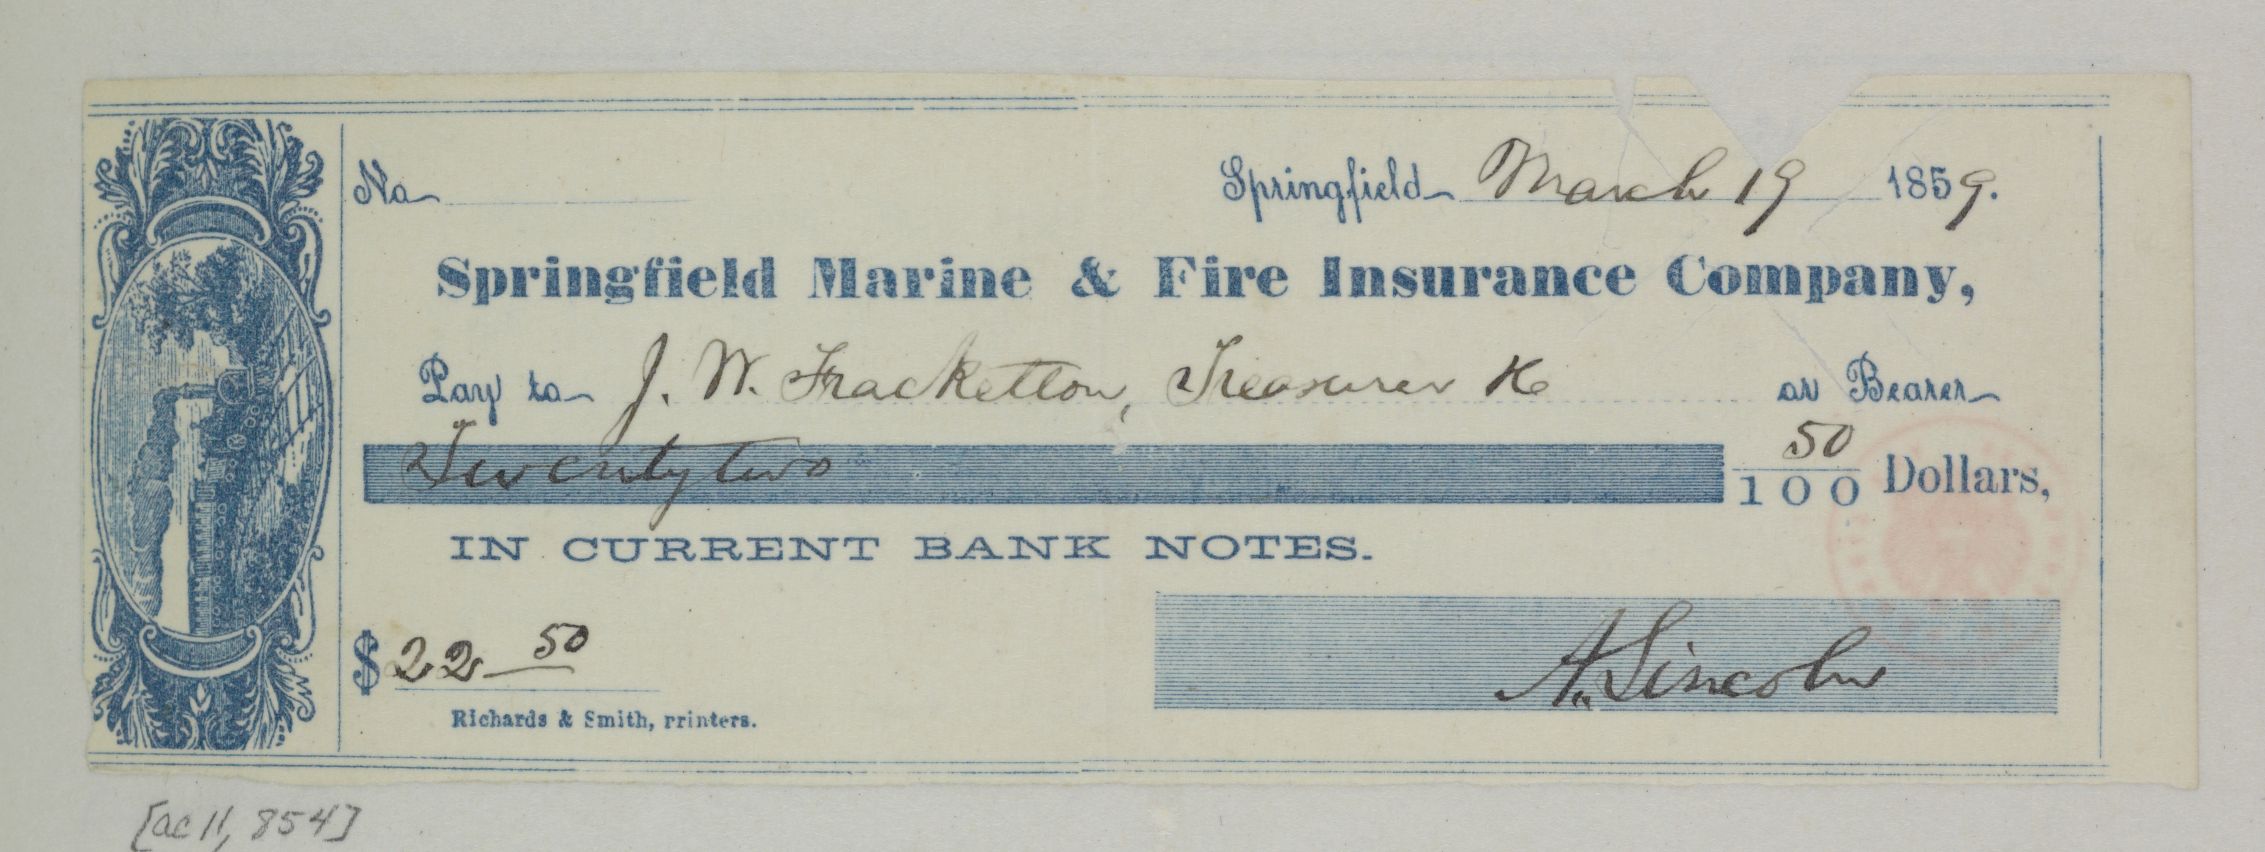 No
Springfield March 19 1859.
Springfield Marine & Fire Insurance Company,
Pay to J. W. Fracketton, Treasurer &c or Bearer
Twentytwo 50/100 Dollars,
IN CURRENT BANK NOTES.
$22 50
A. Lincoln
Richards & Smith, printers.
[ac 11, 854]